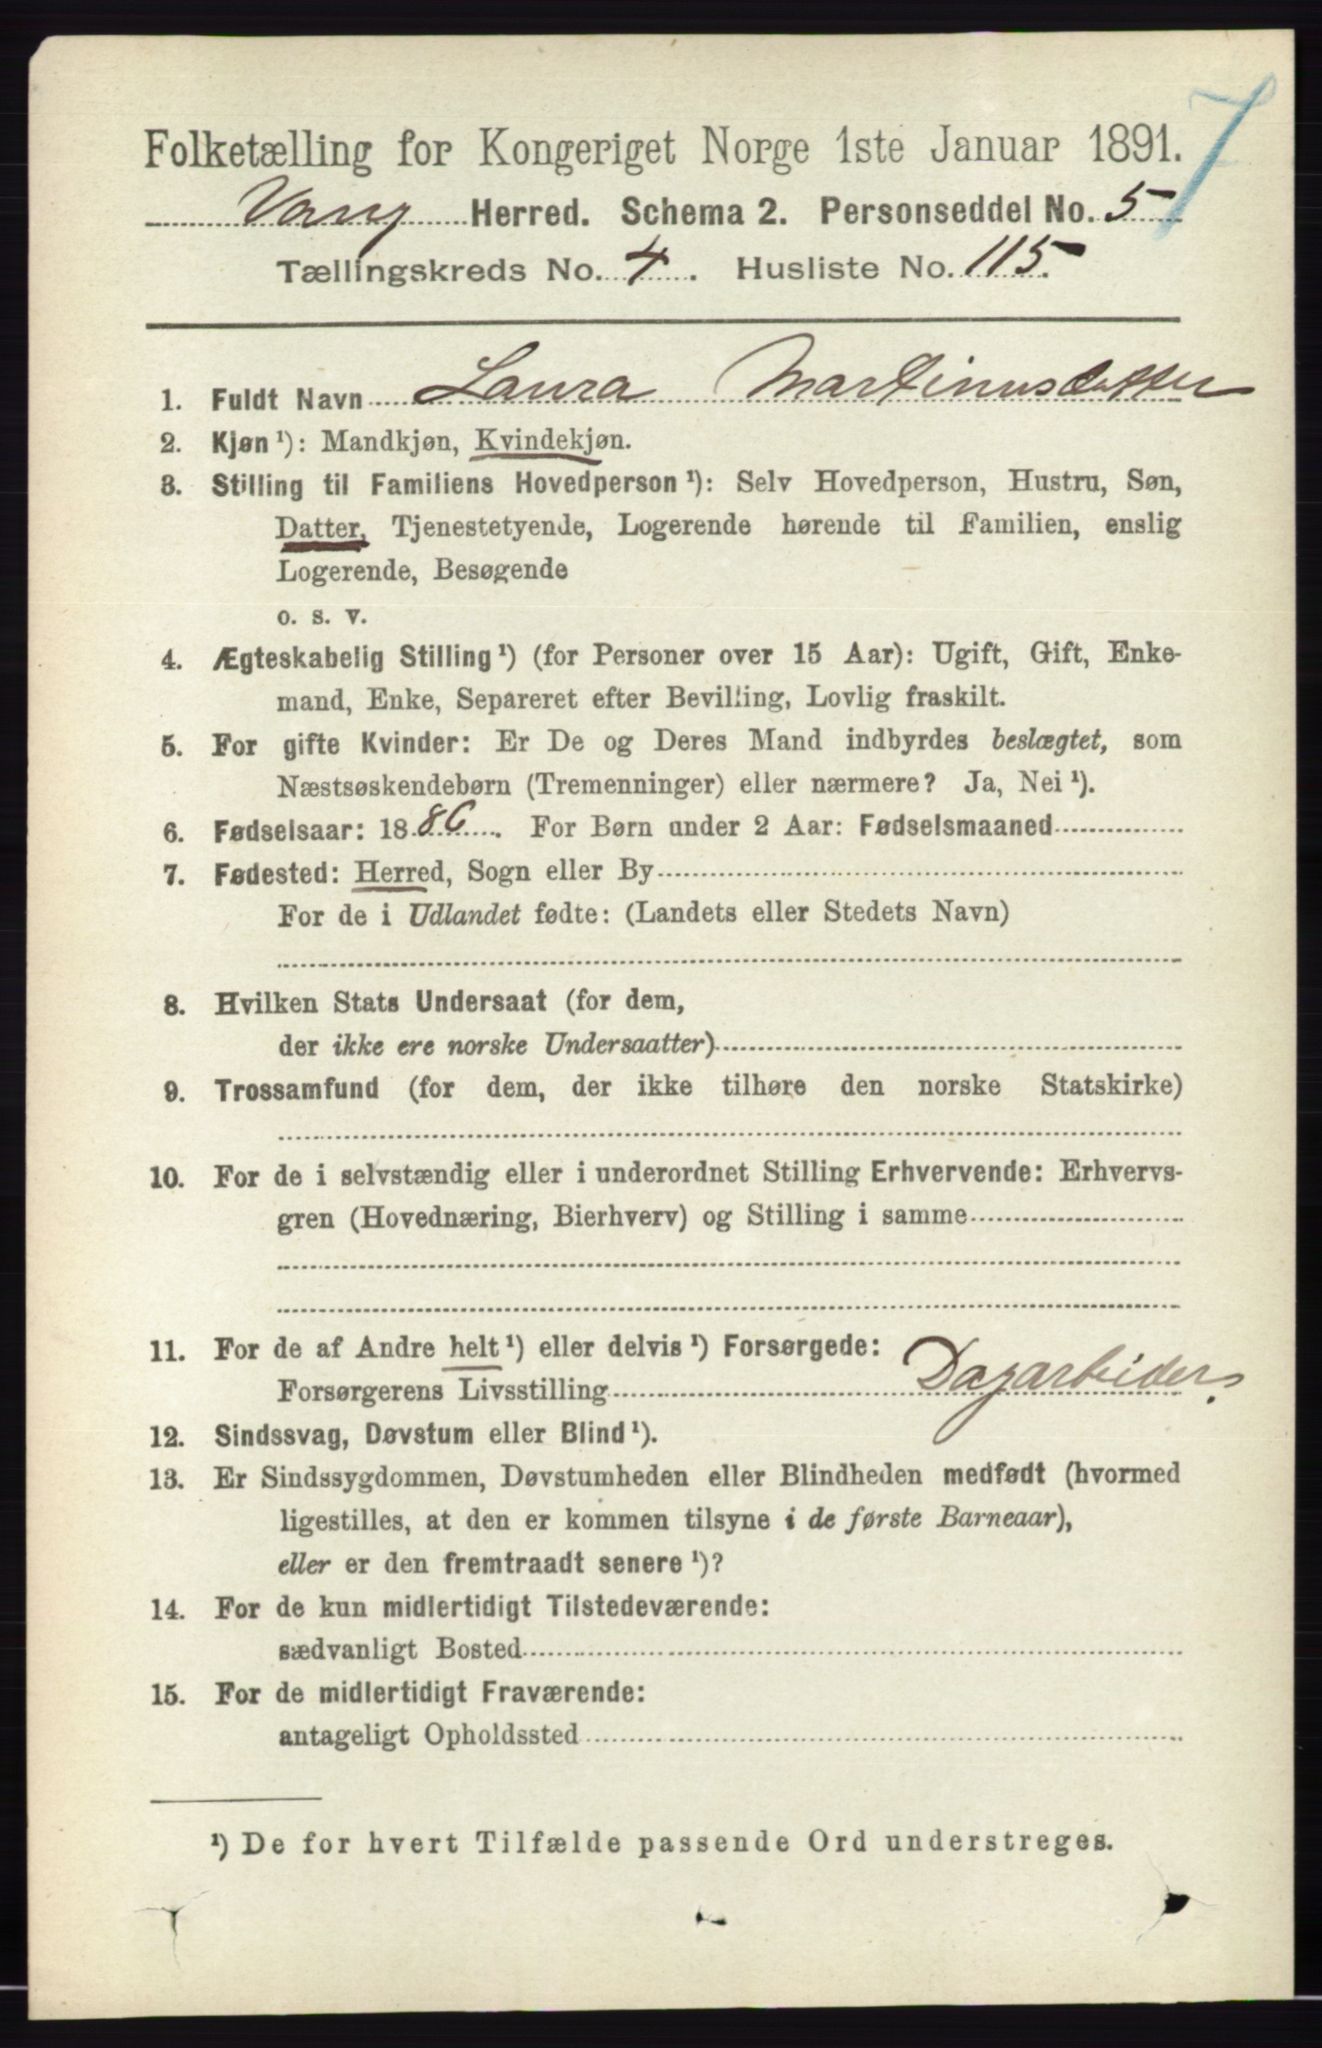 7
Folketælling for Kongeriget Norge 1ste Januar 1891.
Vang Herred. Schema 2. Personseddel No. 5
Tællingskreds No. 4. Husliste No. 115.
1. Fuldt Navn Laura Martinusdatter
2. Kjøn ¹): Mandkjøn, Kvindekjøn.
3. Stilling til Familiens Hovedperson ¹): Selv Hovedperson, Hustru, Søn,
Datter, Tjenestetyende, Logerende hørende til Familien, enslig
Logerende, Besøgende
o. s. v.
4. Ægteskabelig Stilling ¹) (for Personer over 15 Aar): Ugift, Gift, Enke-
mand, Enke, Separeret efter Bevilling, Lovlig fraskilt.
5. For gifte Kvinder: Er De og Deres Mand indbyrdes beslægtet, som
Næstsøskendebørn (Tremenninger) eller nærmere? Ja, Nei ¹).
6. Fødselsaar: 1886. For Børn under 2 Aar: Fødselsmaaned
7. Fødested: Herred, Sogn eller By
For de i Udlandet fødte: (Landets eller Stedets Navn)
8. Hvilken Stats Undersaat (for dem,
der ikke ere norske Undersaatter)
9. Trossamfund (for dem, der ikke tilhøre den norske Statskirke)
10. For de i selvstændig eller i underordnet Stilling Erhvervende: Erhvervs-
gren (Hovednæring, Bierhverv) og Stilling i samme
11. For de af Andre helt ¹) eller delvis ¹) Forsørgede:
Forsørgerens Livsstilling Dagarbeider.
12. Sindssvag, Døvstum eller Blind ¹).
13. Er Sindssygdommen, Døvstumheden eller Blindheden medfødt (hvormed
ligestilles, at den er kommen tilsyne i de første Barneaar),
eller er den fremtraadt senere ¹)?
14. For de kun midlertidigt Tilstedeværende:
sædvanligt Bosted
15. For de midlertidigt Fraværende:
antageligt Opholdssted
¹) De for hvert Tilfælde passende Ord understreges.